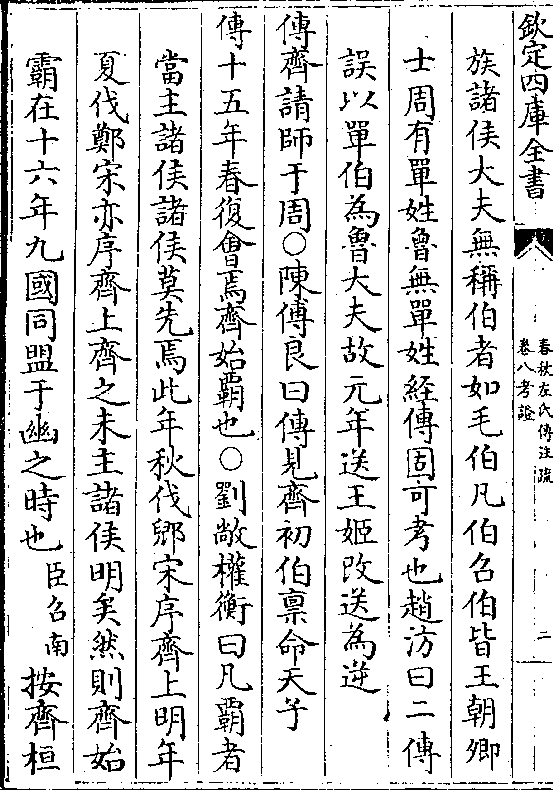 欽定四庫全書
春秋左氏傳注疏
卷八考證
二
族諸侯大夫無稱伯者如毛伯凡伯召伯皆王朝卿
士周有單姓魯無單姓經傳固可考也趙汸曰二傳
誤以單伯為魯大夫故元年送王姬改送為逆
傳齊請師于周○陳傅良曰傳見齊初伯禀命天子
傳十五年春復會焉齊始覇也○劉敞權衡曰凡覇者
當主諸侯諸侯莫先焉此年秋伐郳宋序齊上明年
夏伐鄭宋亦序齊上齊之未主諸侯明矣然則齊始
霸在十六年九國同盟于幽之時也臣召南按齊桓